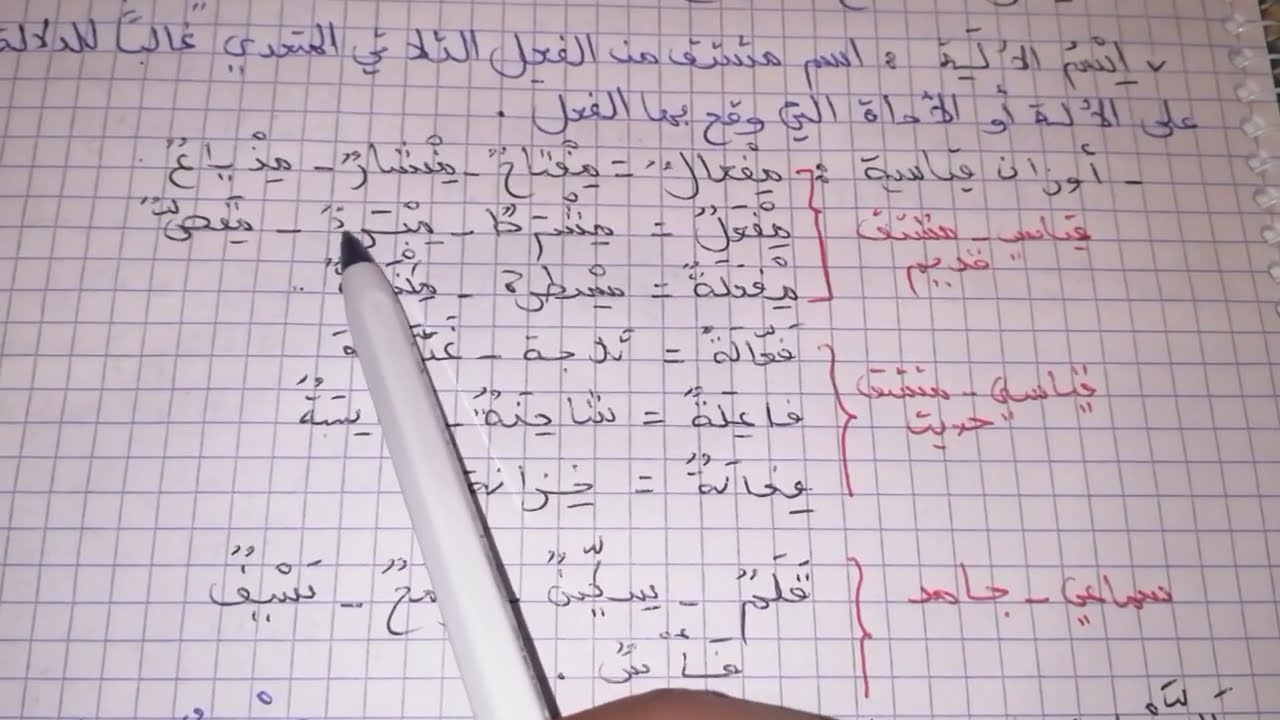 اِسْمُ الآلَةِ : اسم مشتق من الفعل الثلاثي المتعدي غالباً للدلالة
على الآلة أو الأداة التي وقع بها الفعل .
- أوزان قياسية : مِفْعَالٌ = مِفْتَاحٌ - مِنْشَارٌ - مِذْيَاعٌ .
مِفْعَلٌ = مِشْرَطٌ - مِبْرَدٌ - مِقَصٌّ
قياسي - مشتق
قديم
مِفْعَلَةٌ = مِسْطَرَة ..
فَعَّالَةٌ = ثَلاجة
قياسي - مشتق
حديث
فَاعِلَةٌ = شَاحِنَةٌ
فِعَالَةٌ = خِزَانَة
سماعي - جامد
قَلَمٌ - سِكِّينٌ - سَيْفٌ
فَأْسٌ .